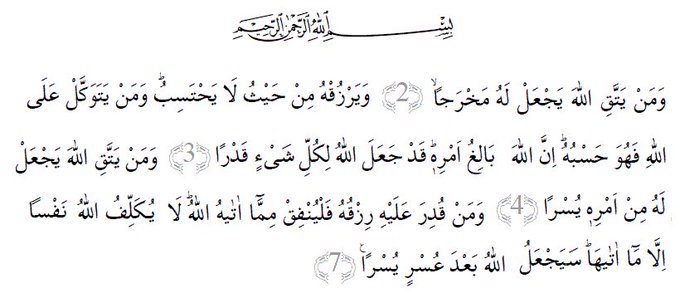 بِسْمِ اللهِ الرَّحْمٰنِ الرَّحِيمِ
وَمَنْ يَتَّقِ اللهَ يَجْعَلْ لَهُ مَخْرَجاًۙ ﴿2﴾ وَيَرْزُقْهُ مِنْ حَيْثُ لَا يَحْتَسِبُۜ وَمَنْ يَتَوَكَّلْ عَلَى
اللهِ فَهُوَ حَسْبُهُۜ اِنَّ اللهَ بَالِغُ اَمْرِهِۜ قَدْ جَعَلَ اللهُ لِكُلِّ شَىْءٍ قَدْرًا ﴿3﴾ وَمَنْ يَتَّقِ اللهَ يَجْعَلْ
لَهُ مِنْ اَمْرِهِ يُسْرًا ﴿4﴾ وَمَنْ قُدِرَ عَلَيْهِ رِزْقُهُ فَلْيُنْفِقْ مِمَّٓا اٰتٰيهُ اللهُۜ لَا يُكَلِّفُ اللهُ نَفْسًا
اِلَّا مَٓا اٰتٰيهَاۜ سَيَجْعَلُ اللهُ بَعْدَ عُسْرٍ يُسْرًا۟ ﴿7﴾